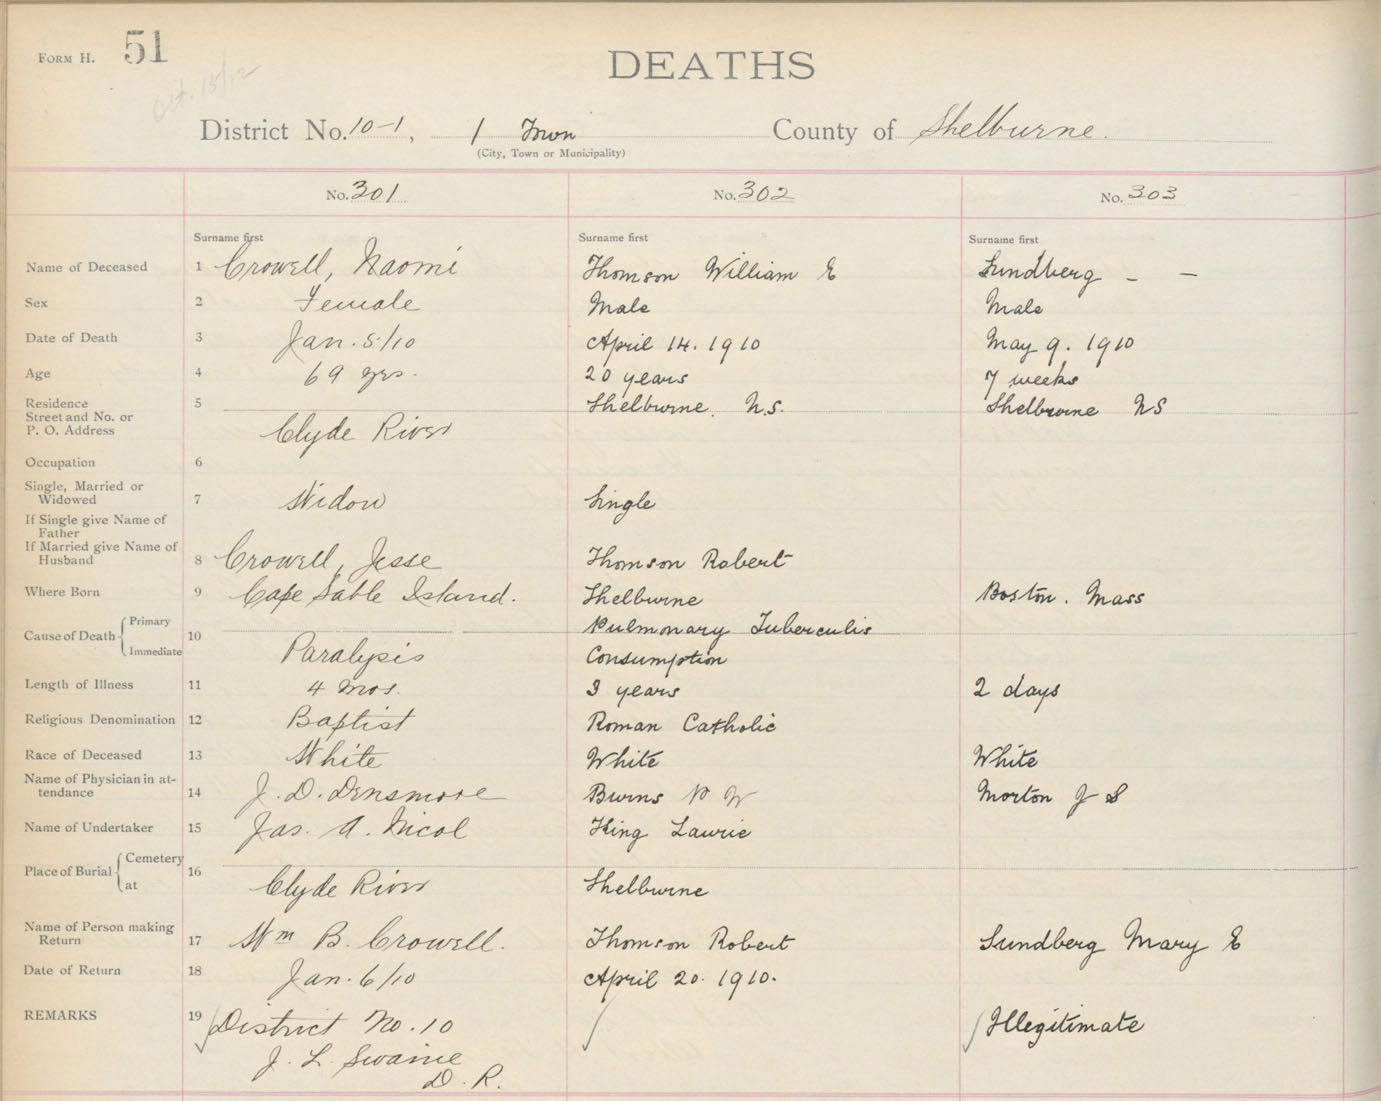 FORM H. 51
Oct. 15/12
DEATHS
District No. 10-1, 1 Town County of Shelburne.
(City, Town or Municipality)
No. 301 No. 302 No. 303
Surname first Surname first Surname first
Name of Deceased 1 Crowell, Naomi Thomson William E Sundberg - -
Sex 2 Female Male Male
Date of Death 3 Jan. 5/10 April 14. 1910 May 9. 1910
Age 4 69 yrs. 20 years 7 weeks
Residence 5 Shelburne. N.S. Shelburne NS
Street and No. or
P. O. Address Clyde River
Occupation 6
Single, Married or
Widowed 7 Widow Single
If Single give Name of
Father
If Married give Name of
Husband 8 Crowell, Jesse Thomson Robert
Where Born 9 Cape Sable Island. Shelburne Boston. Mass
Cause of Death Primary 10 Pulmonary Tuberculis
Immediate Paralysis Consumption
Length of Illness 11 4 mos. 3 years 2 days
Religious Denomination 12 Baptist Roman Catholic
Race of Deceased 13 White White White
Name of Physician in at-
tendance 14 J. D. Densmore Burns P W Morton J S
Name of Undertaker 15 Jas. A. Nicol King Lawrie
Place of Burial Cemetery 16
at Clyde River Shelburne
Name of Person making
Return 17 Wm B. Crowell. Thomson Robert Sundberg Mary E
Date of Return 18 Jan. 6/10 April 20. 1910.
REMARKS 19 District No. 10 Illegitimate
J. L. Swaine
D. R.